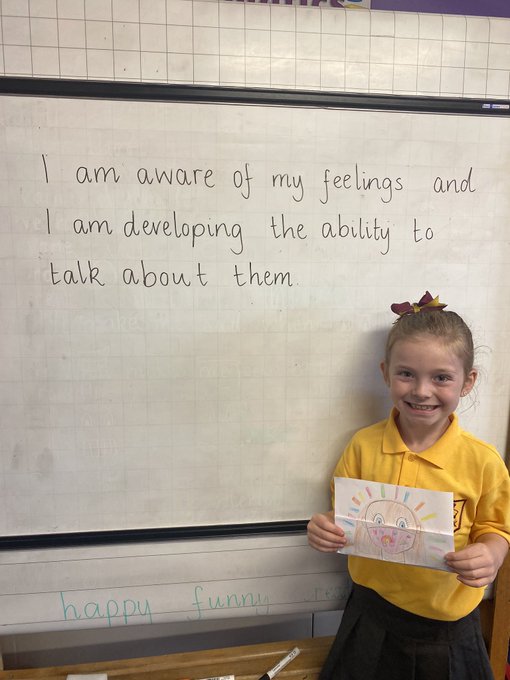 I am aware of my feelings and
I am developing the ability to
talk about them.
happy funny